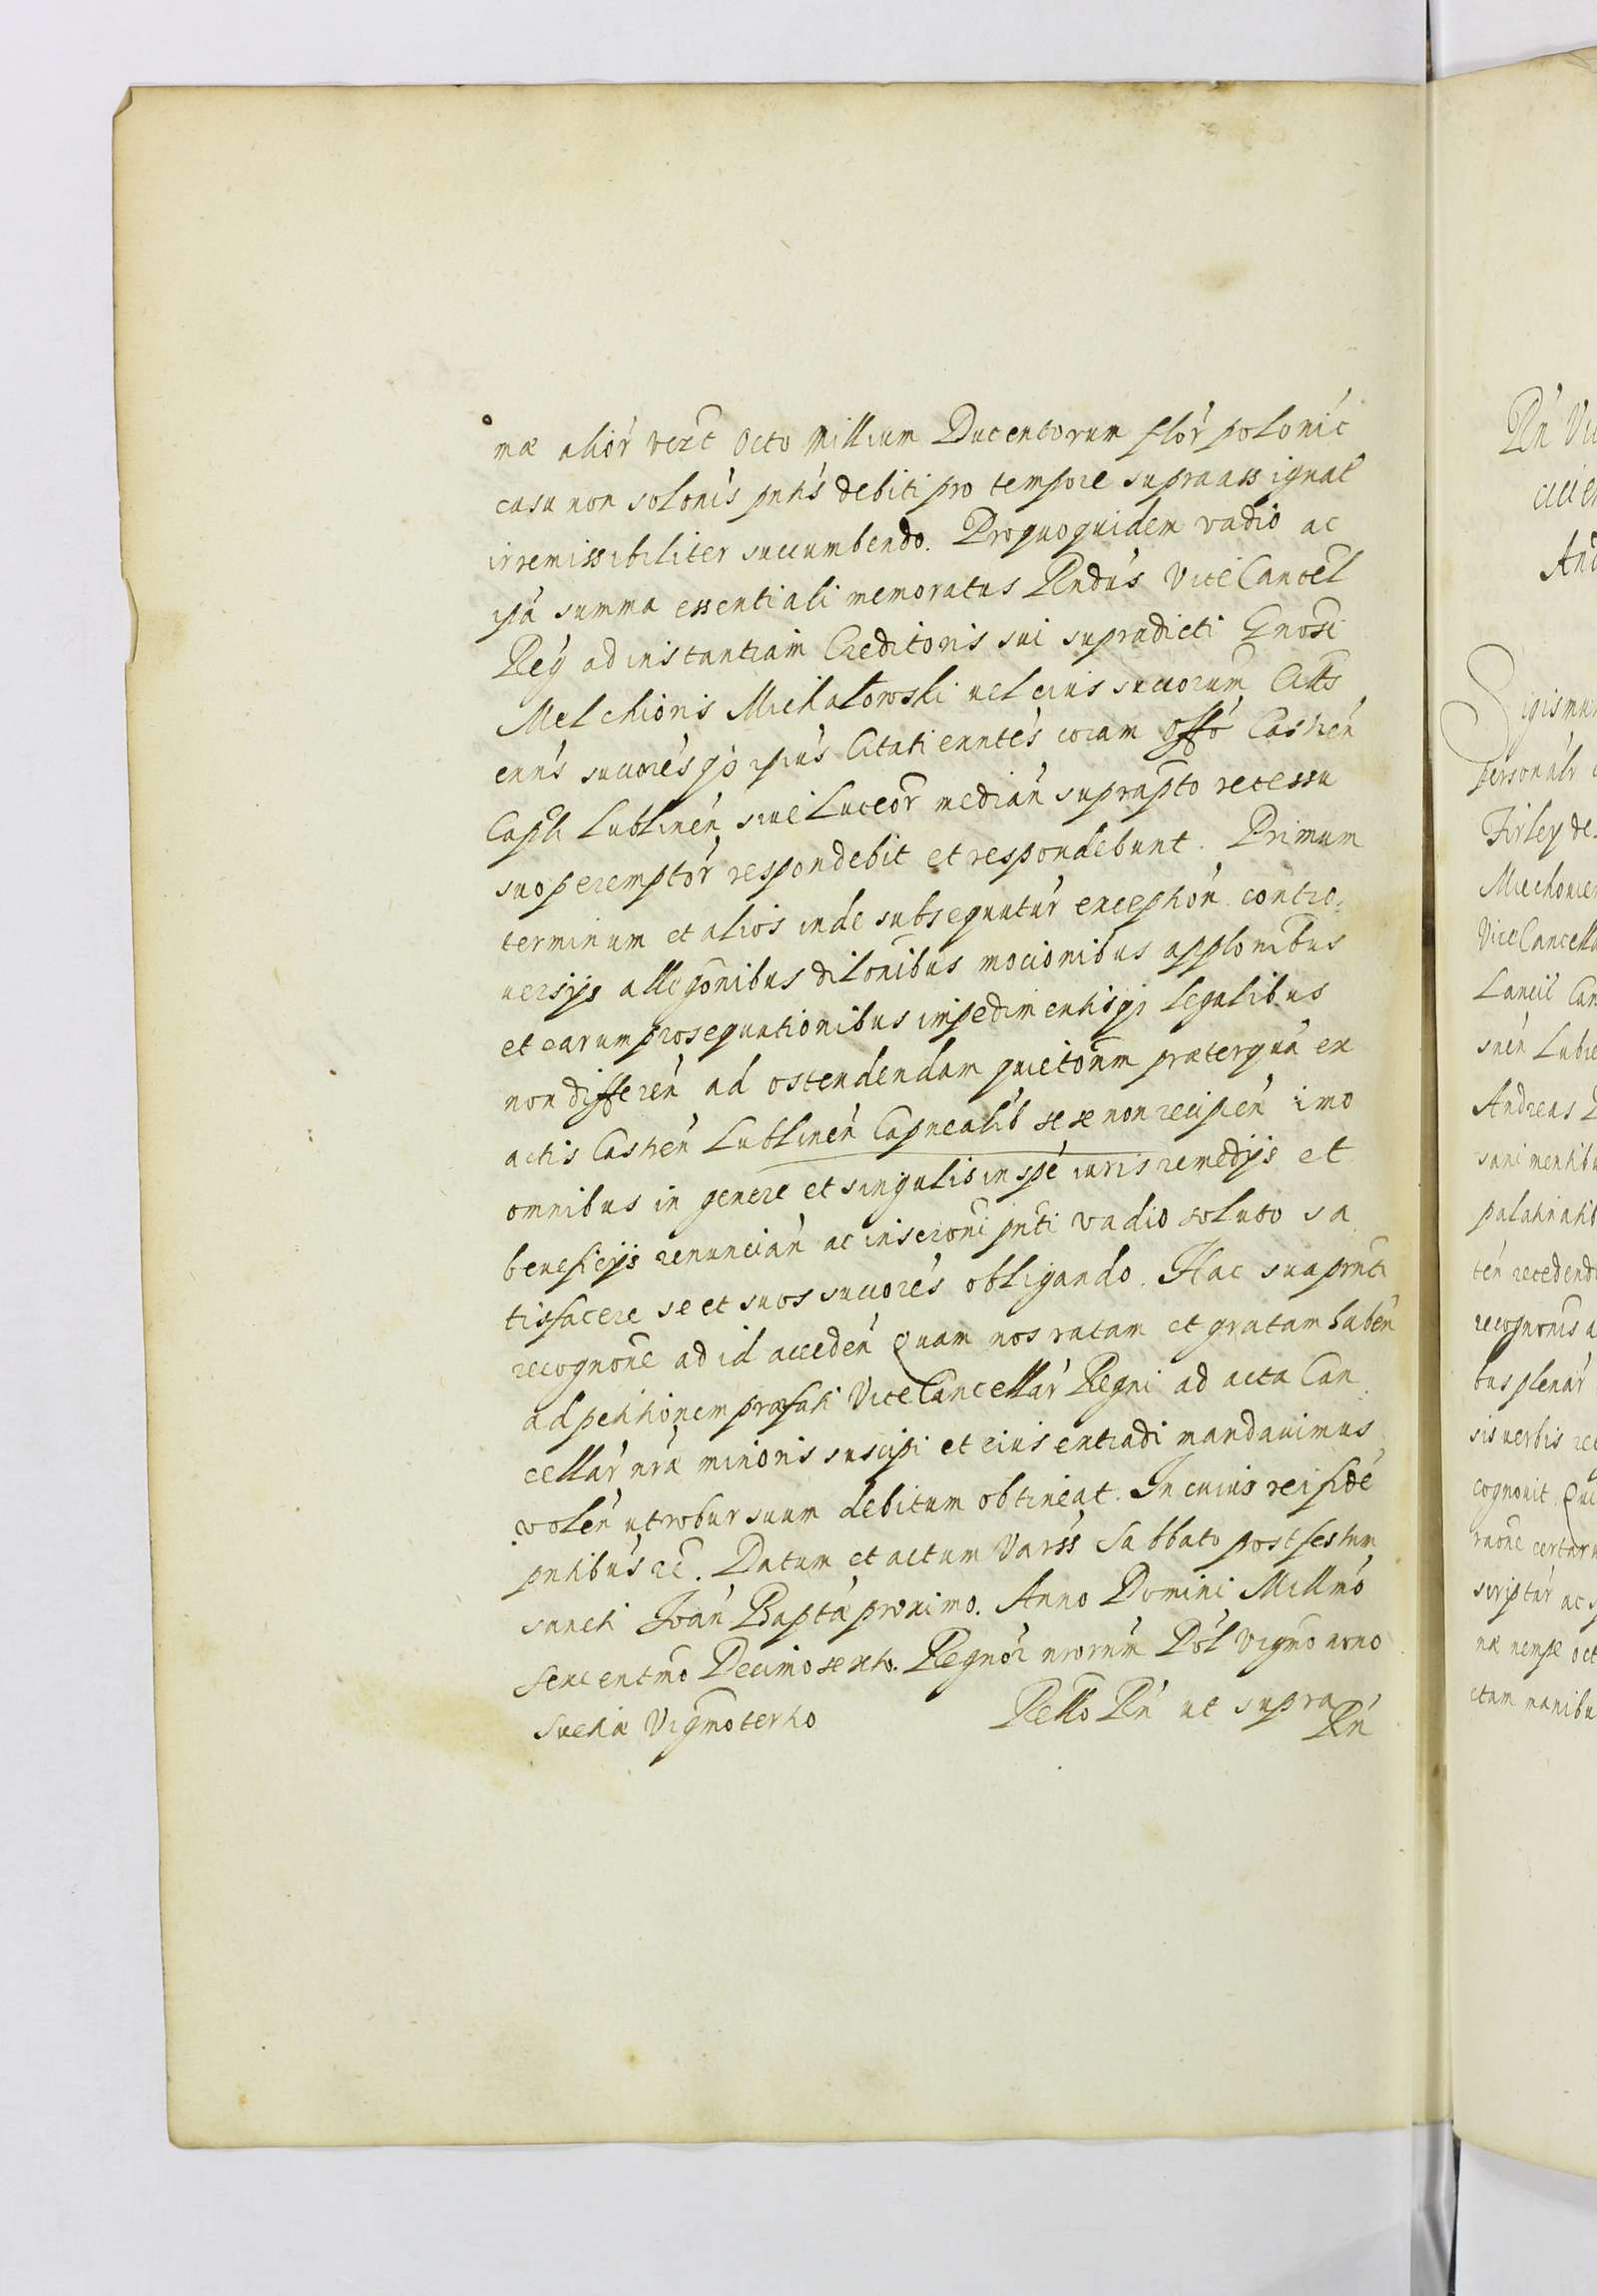 mæ alior vert Octo Millium Ducentorum flor polonic
casu non solonis pntis debiti pro tempore supra assignat
irremissibiliter succumbendo. Pro quo quidem vadio ac
ipa summa essentiali memoratus Rndus ViceCancel
Reg ad instantiam Creditoris sui supradicti Gnosi
Melchioris Michałowski uel eius succorum Citts
euns succores qȝ ipius Citati eunntes coram Offo Castren
Capli Lublinen siue Luceor median suprapto recessu
suo peremptor respondebit et respondebunt. Primum
terminum et alios inde subsequntur exception contro-
uersijs allegonibus dilonibus mocionibus applonibus
et earum prosequutionibus impedimentisqȝ legalibus
non differen ad ostendendam quietonm præterquã ex
actis Castren Lublinen Capnealib sese non recipen imo
omnibus in genere et singulis in spe iuris remedijs et
beneficijs renuncian ac inscroni pnti vadio soluto sa
tisfacere se et suos succores obligando. Hac sua prnti
recognone ad id acceden Quam nos ratam et gratam haben
ad petitionem præfati ViceCancellar Regni ad acta Can
cellar nræ minoris suscipi et eius extradi mandauimus
volen ut robur suum debitum obtineat. In cuius rei fidẽ
pntibus ec. Datum et actum Varss Sabbato post festum
sancti Ioan Bapta proximo. Anno Domini Millmo
sexcentmo Decimosexto. Regnor nrorum Pol Vigmo nono
Sueciæ Vigmotertio Rello Rn ut supra
Rn
Rn
Sigismun
personalr
Firley de
Miechouien
ViceCancella
Lancic Can
snen Lubr
Andreas
sani mentibu
palatinatib
ten recedend
recognonis a
bus plenar
sis uerbis rec
cognouit
raone certar
scriptur ac
mæ nempe oct
ctum manibu